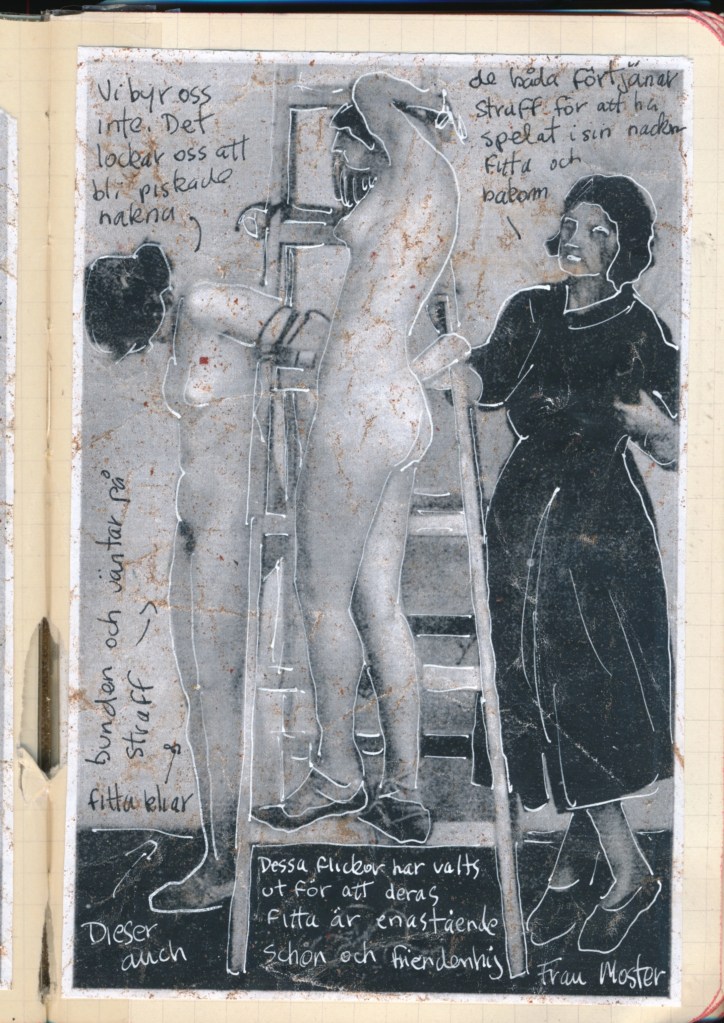 Vi byr oss
inte. Det
lockar oss att
bli piskade
nakna
de båda förtjänar
straff för att ha
spelat i sin
fitta och
bakom
bunden och väntar på
straff
fitta kliar
Dieser
auch
Dessa flickor har valts
ut för att deras
fitta är enastående
schön och
Frau Moster